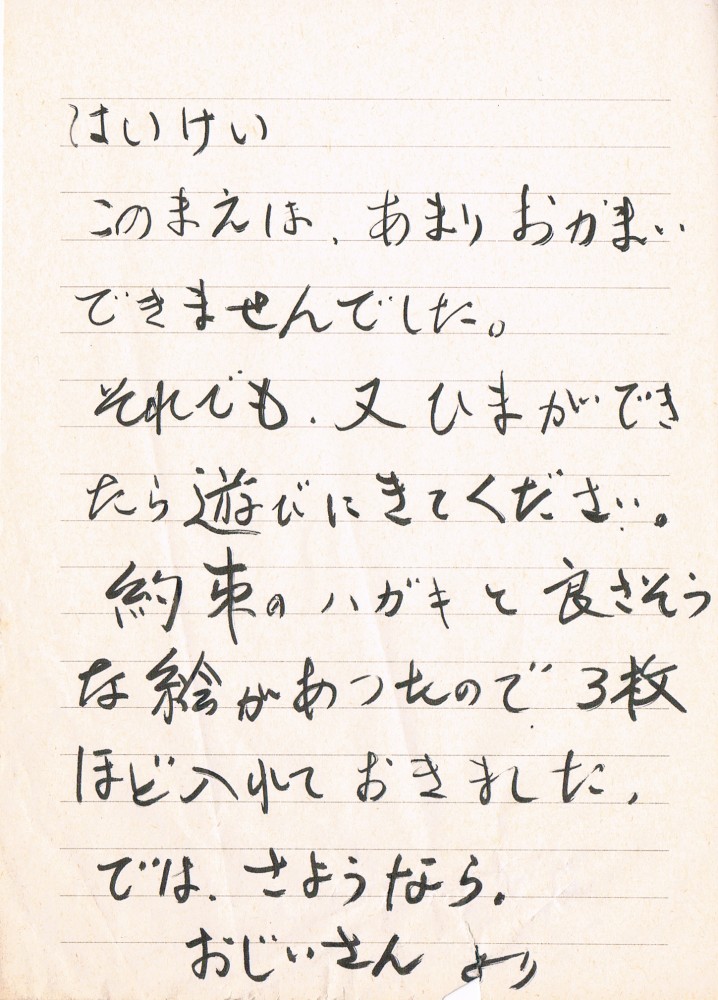 はいけい
このまえは、あまりおかまい
できませんでした。
それでも、又ひまができ
たら遊びにきてください。
約束のハガキと良さそう
な絵があつたので3枚
ほど入れておきました、
では、さようなら。
おじいさん より